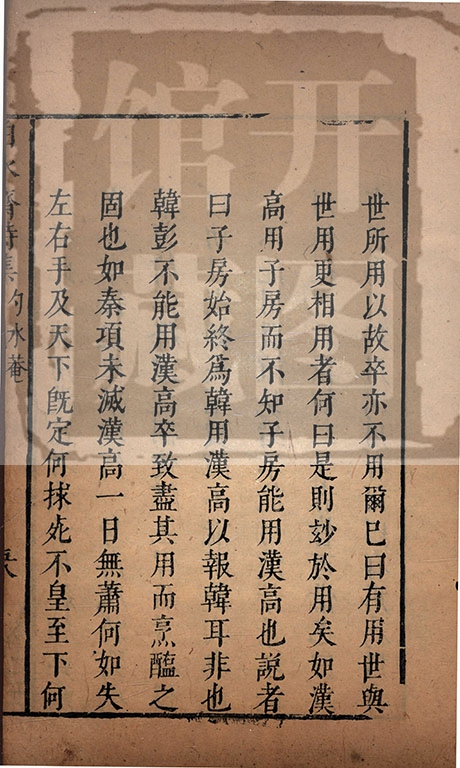 世所用以故卒亦不用爾已曰有用世與
世用更相用者何曰是則玅於用矣如漢
高用子房而不知子房能用漢高也說者
曰子房始終爲韓用漢高以報韓耳非也
韓彭不能用漢高卒致盡其用而烹醢之
固也如秦項未滅漢高一日無蕭何如失
左右手及天下旣定何捄死不皇至下何
白水齋詩集 勺水菴
开图
馆藏